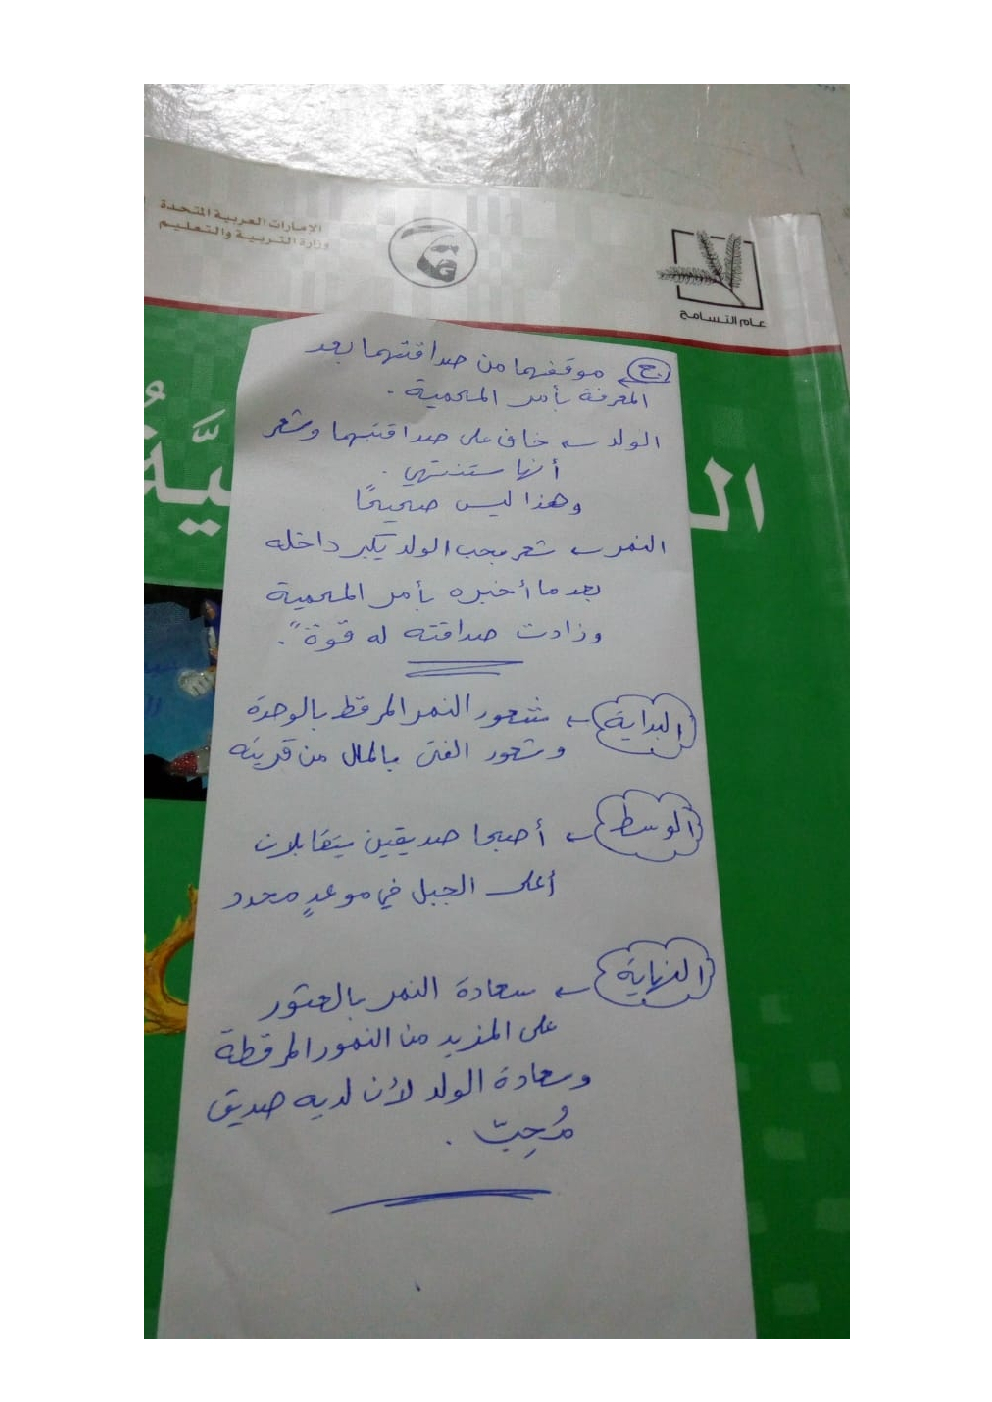 الإمارات العربية المتحدة
وزارة التربية والتعليم
عام التسامح
ج موقفهما من صداقتهما بعد
المعرفة بأمر المحمية .
الولد ← خاف على صداقتهما وشعر
أنها ستنتهي .
وهذا ليس صحيحًا
النمر ← شعر بحب الولد يكبر داخله
بعد ما أخبره بأمر المحمية
وزادت صداقته له قوة ً.
البداية ← شعور النمر المرقط بالوحدة
وشعور الفتى بالملل من قريته
الوسط ← أصبحا صديقين يتقابلان
أعلى الجبل في موعدٍ محدد
النهاية ← سعادة النمر بالعثور
على المزيد من النمور المرقطة
وسعادة الولد لأن لديه صديق
مُحِبّ .